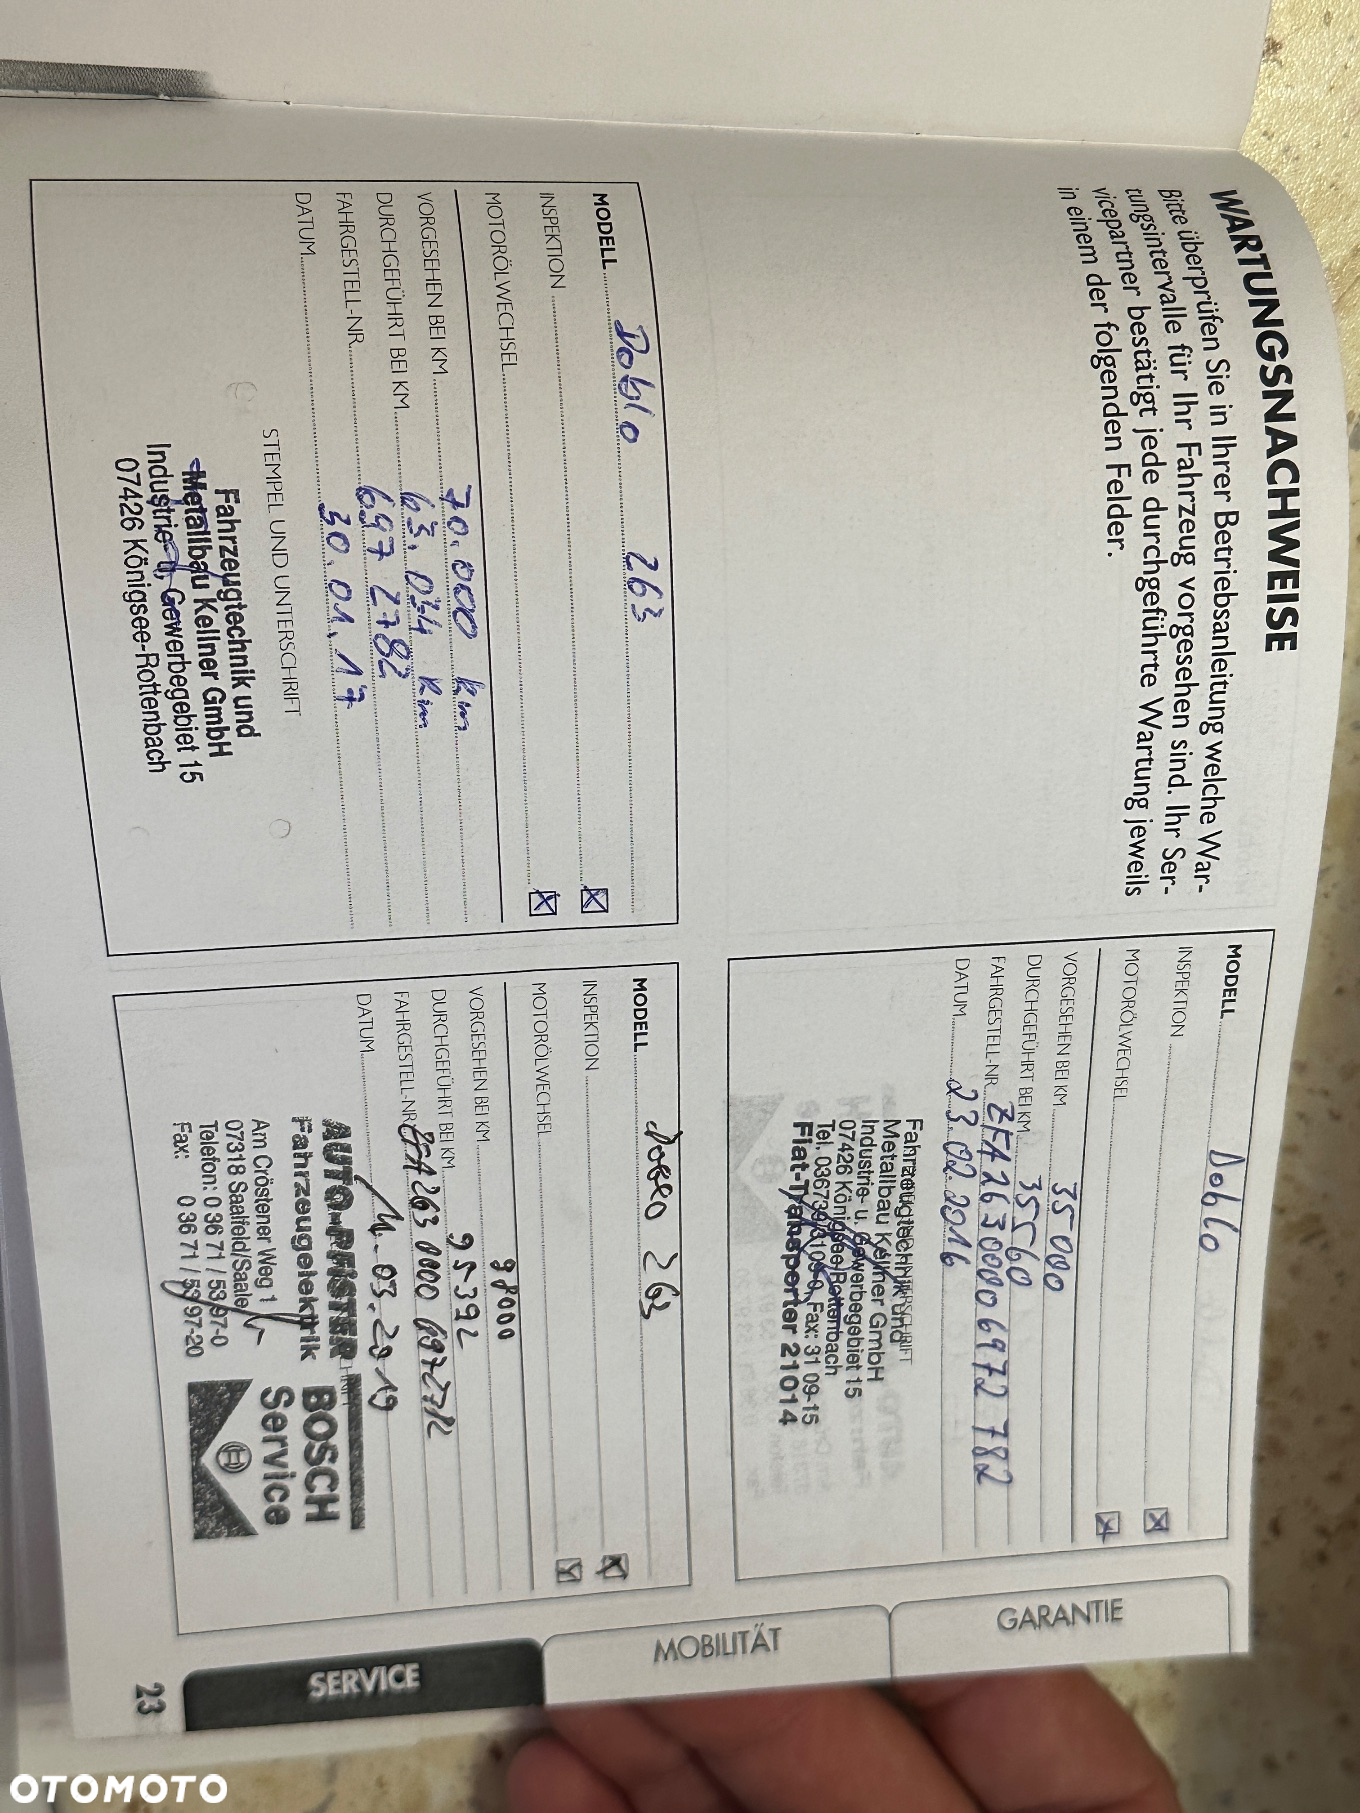 WARTUNGSNACHWEISE
Bitte überprüfen Sie in Ihrer Betriebsanleitung welche War-
tungsintervalle für Ihr Fahrzeug vorgesehen sind. Ihr Ser-
vicepartner bestätigt jede durchgeführte Wartung jeweils
in einem der folgenden Felder.
MODELL Doblo
INSPEKTION
MOTORÖLWECHSEL
VORGESEHEN BEI KM 35000
DURCHGEFÜHRT BEI KM 35560
FAHRGESTELL-NR. ZFA26300006972782
DATUM 23.02.2016
Fahrzeugtechnik und
Metallbau Kellner GmbH
Industrie- u. Gewerbegebiet 15
07426 Königsee-Rottenbach
Tel. Fax: 31 09-15
Fiat-Transporter 21014
MODELL Doblo 263
INSPEKTION
MOTORÖLWECHSEL
VORGESEHEN BEI KM 70.000 km
DURCHGEFÜHRT BEI KM 63.034 km
FAHRGESTELL-NR. 697 2782
DATUM 30.01.17
STEMPEL UND UNTERSCHRIFT
Fahrzeugtechnik und
Metallbau Kellner GmbH
Industrie- u. Gewerbegebiet 15
07426 Königsee-Rottenbach
MODELL Doblo 263
INSPEKTION
MOTORÖLWECHSEL
VORGESEHEN BEI KM 98000
DURCHGEFÜHRT BEI KM 95392
FAHRGESTELL-NR. ZFA263 0000 6972782
DATUM 11.03.2019
AUTO-PFISTER
Fahrzeugelektrik
Am Cröstener Weg 1
07318 Saalfeld/Saale
Telefon: 0 36 71 / 53 97-0
Fax: 0 36 71 / 53 97-20
BOSCH
Service
GARANTIE
MOBILITÄT
SERVICE
23
OTOMOTO